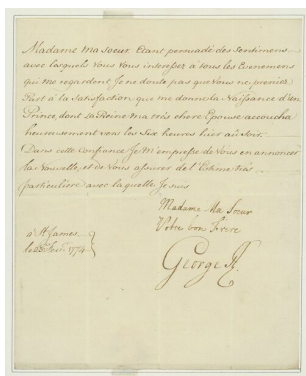 Madame Ma Soeur Etant persuadé des Sentimens
avec lesquels Vous Vous interessez à tous les Evenemens
qui me regardent Je ne doute pas que Vous ne preniez
Part à la Satisfaction que me donne la Naissance d'un
Prince, dont la Reine Ma très chere Epouse accoucha
heureusement vers les Six heures hier au Soir.
Dans cette Confiance Je M'empresse de Vous en annoncer
la Nouvelle, et de Vous assurer de l'Estime très
particuliere avec laquelle Je suis
Madame Ma Soeur
Votre bon Frere
à St James
le 25 1774
George R.